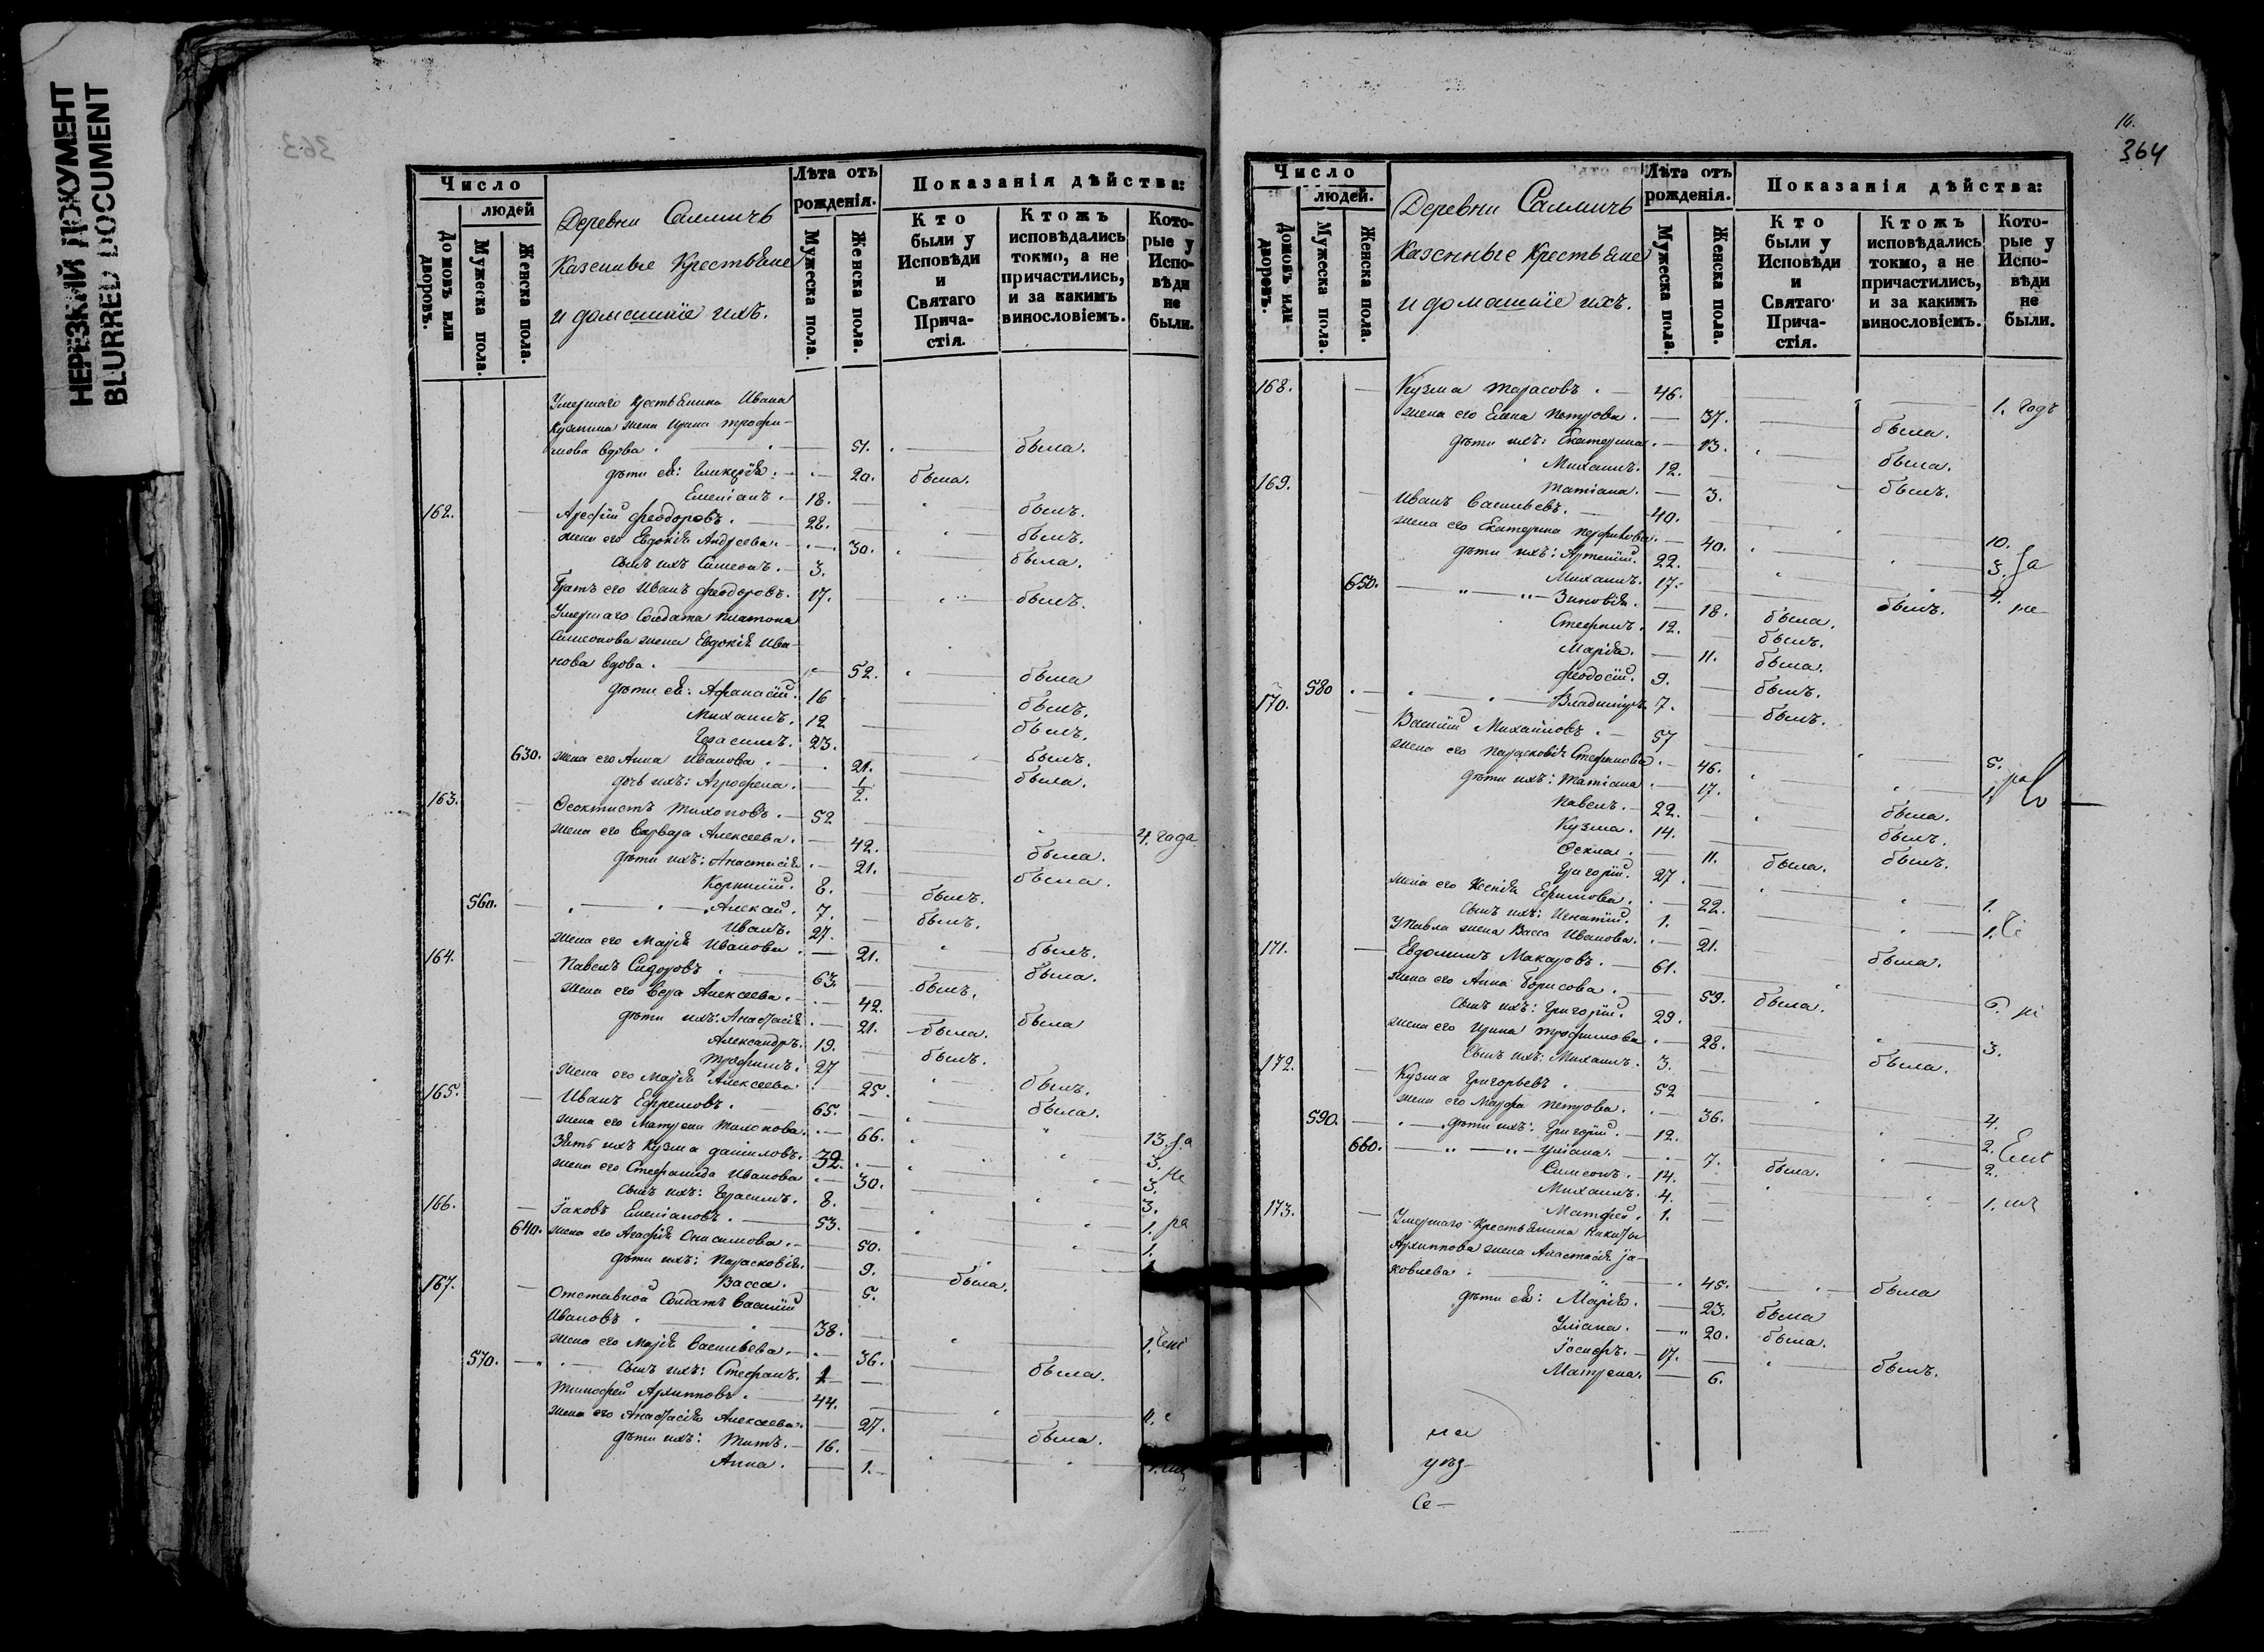 НЕРЕЗКИЙ ДОКУМЕНТ
BLURRED DOCUMENT
363
Число
людей
Домовъ или дворовъ.
Мужеска пола.
Женска пола.
Деревни
Казенные Крестьяне
и домашніе ихъ.
Лѣта отъ рожденія.
Мужеска пола.
Женска пола.
Показанія дѣйства:
Кто были у Исповѣди и Святаго Причастія.
Ктожъ исповѣдались токмо, а не причастились, и за какимъ винословіемъ.
Которые у Исповѣди не были.
Умершаго крестьянина Ивана
Кузмина жена Ирина Трофи-
мова вдова. 51. была.
дѣти ея: Гликерія. 20. была.
Емеліанъ. 18. былъ.
162. Арефій Феодоровъ. 28. былъ.
жена его Евдокія Андреева. 30. была.
сынъ ихъ Симеонъ. 3.
Братъ его Иванъ Феодоровъ. 17. былъ.
Умершаго Солдата Платона
Симеонова жена Евдокія Ива-
нова вдова. 52. была
дѣти ея: Афанасій. 16 былъ.
Михаилъ. 12 былъ.
Герасимъ. 23. былъ.
630. жена его Анна Иванова. 21. была.
дочь ихъ: Агрофена. 1/2.
163. Феоктистъ Тихоновъ. 52 4. года
жена его Варвара Алексеева. 42. была.
дѣти ихъ: Анастасія 21. была.
Корнилій. 8. былъ.
560. Алексѣй. 7. былъ.
Иванъ. 27. былъ.
жена его Марія Иванова 21. была.
164. Павелъ Сидоровъ 63. былъ.
жена его Вера Алексеева. 42. была
дѣти ихъ: Анастасія 21. была.
Александръ. 19. былъ.
Трофимъ. 27 былъ.
жена его Марія Алексеева 25. была.
165. Иванъ Ефремовъ. 65. 13.
жена его Матрена Тихонова. 66. 3.
Зять ихъ Кузма Даниловъ. 32. 3.
жена его Стефанида Иванова 30. 3.
сынъ ихъ: Герасимъ. 8.
166. Іаковъ Емеліановъ. 53. 1.
640. жена его Агафія Онисимова. 50. 1.
дѣти ихъ: Парасковія. 9. была.
Васса. 5.
167. Отставной Солдатъ Василій
Ивановъ. 38. 1.
жена его Марія Васильева. 36. была.
570. сынъ ихъ: Стефанъ. 1
Тимофей Архиповъ. 44.
жена его Анастасія Алексеева. 27. была.
дѣти ихъ: Титъ. 16.
Анна. 1.
16.
364
Число
людей.
Домовъ или дворовъ.
Мужеска пола.
Женска пола.
Деревни
Казенные Крестьяне
и домашніе ихъ.
Лѣта отъ рожденія.
Мужеска пола.
Женска пола.
Показанія дѣйства:
Кто были у Исповѣди и Святаго Причастія.
Ктожъ исповѣдались токмо, а не причастились, и за какимъ винословіемъ.
Которые у Исповѣди не были.
168. Кузма Тарасовъ. 46. 1. годъ
жена его Елена Петрова. 37. была.
дѣти ихъ: Екатерина. 13. была.
Михаилъ. 12. былъ.
Татіана. 3.
169. Иванъ Васильевъ. 40. 10.
жена его Екатерина 40. 3.
дѣти ихъ: Артемій. 22. 4.
Михаилъ. 17. былъ.
650. Зиновія. 18. была.
Стефанъ. 12. былъ.
Марія. 11. была.
Феодосій. 9. былъ.
580 Владиміръ. 7. былъ.
170. Василій Михайловъ. 57 5.
жена его Парасковія Стефанова 46. 1
дѣти ихъ: Татіана 17. была.
Павелъ. 22. былъ.
Кузма. 14. былъ.
Фекла. 11. была.
Григорій. 27. 1.
жена его Ксенія Ефимова. 22. 1.
сынъ ихъ: Игнатій. 1.
У Павла жена Васса Иванова. 21. была.
171. Евдокимъ Макаровъ. 61. 6.
жена его Анна Борисова. 59. была.
сынъ ихъ: Григорій. 29. 3.
жена его Ирина Трофимова 28. была.
сынъ ихъ: Михаилъ. 3.
172. Кузма Григорьевъ. 52 4.
жена его Марфа Петрова. 36. 2.
590. дѣти ихъ: Григорій. 12. 2.
660. Уліана. 7. была.
Симеонъ. 14. 1.
Михаилъ. 4.
Матфей. 1.
173. Умершаго Крестьянина Никиты
Архиппова жена Анастасія Іа-
ковлева. 45. была
дѣти ея: Марія. 23. была
Уліана. 20. была.
Іосифъ. 17. былъ.
Матрена. 6.